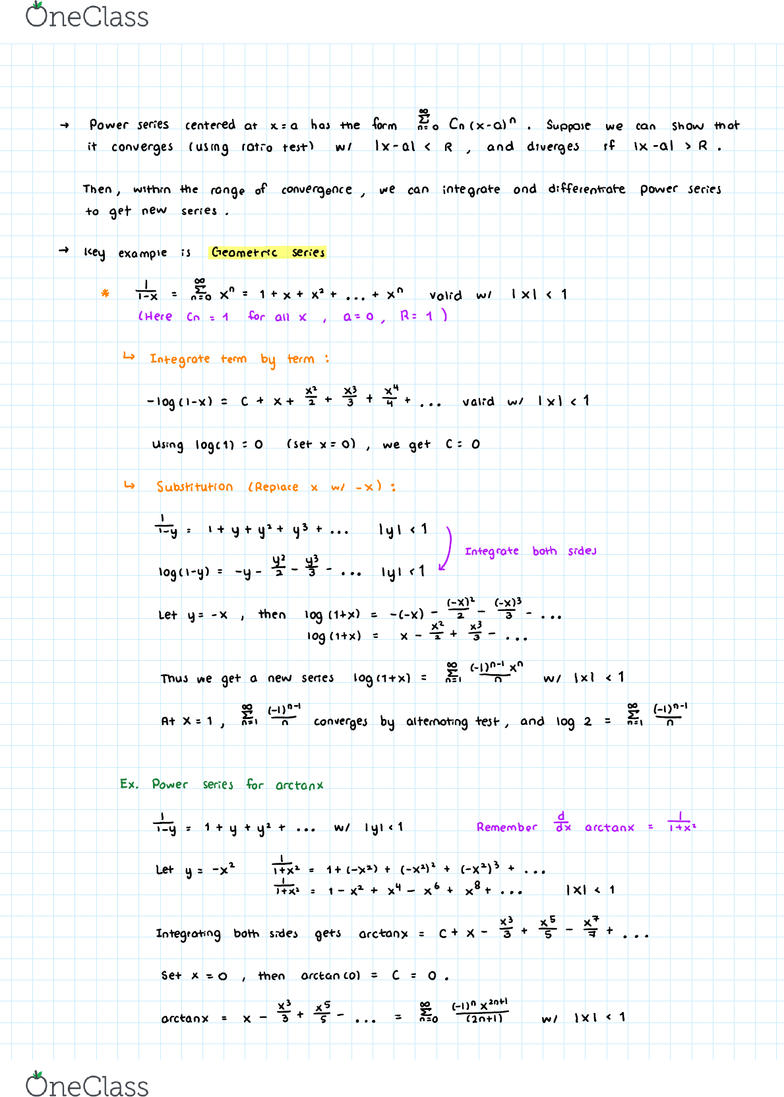 OneClass
→ Power series centered at x=a has the form ∞Σn=0 Cn(x-a)ⁿ. Suppose we can show that
it converges (using ratio test) w/ |x-a| < R, and diverges if |x-a| > R.
Then, within the range of convergence, we can integrate and differentiate power series
to get new series.
→ Key example is Geometric series
* 1/(1-x) = ∞Σn=0 xⁿ = 1 + x + x² + ... + xⁿ valid w/ |x| < 1
(Here Cn = 1 for all x, a=0, R=1)
↳ Integrate term by term:
-log(1-x) = C + x + x²/2 + x³/3 + x⁴/4 + ... valid w/ |x| < 1
Using log(1) = 0 (set x=0), we get C=0
↳ Substitution (Replace x w/ -x):
1/(1-y) = 1 + y + y² + y³ + ... |y| < 1
Integrate both sides
log(1-y) = -y - y²/2 - y³/3 - ... |y| < 1
Let y = -x, then log(1+x) = -(-x) - (-x)²/2 - (-x)³/3 - ...
log(1+x) = x - x²/2 + x³/3 - ...
Thus we get a new series log(1+x) = ∞Σn=1 (-1)ⁿ⁻¹xⁿ/n w/ |x| < 1
At x=1, ∞Σn=1 (-1)ⁿ⁻¹/n converges by alternating test, and log 2 = ∞Σn=1 (-1)ⁿ⁻¹/n
Ex. Power series for arctanx
1/(1-y) = 1 + y + y² + ... w/ |y| < 1 Remember d/dx arctanx = 1/(1+x²)
Let y = -x² 1/(1+x²) = 1 + (-x²) + (-x²)² + (-x²)³ + ...
1/(1+x²) = 1 - x² + x⁴ - x⁶ + x⁸ + ... |x| < 1
Integrating both sides gets arctanx = C + x - x³/3 + x⁵/5 - x⁷/7 + ...
Set x = 0, then arctan(0) = C = 0.
arctanx = x - x³/3 + x⁵/5 - ... = ∞Σn=0 (-1)ⁿx²ⁿ⁺¹/(2n+1) w/ |x| < 1
OneClass